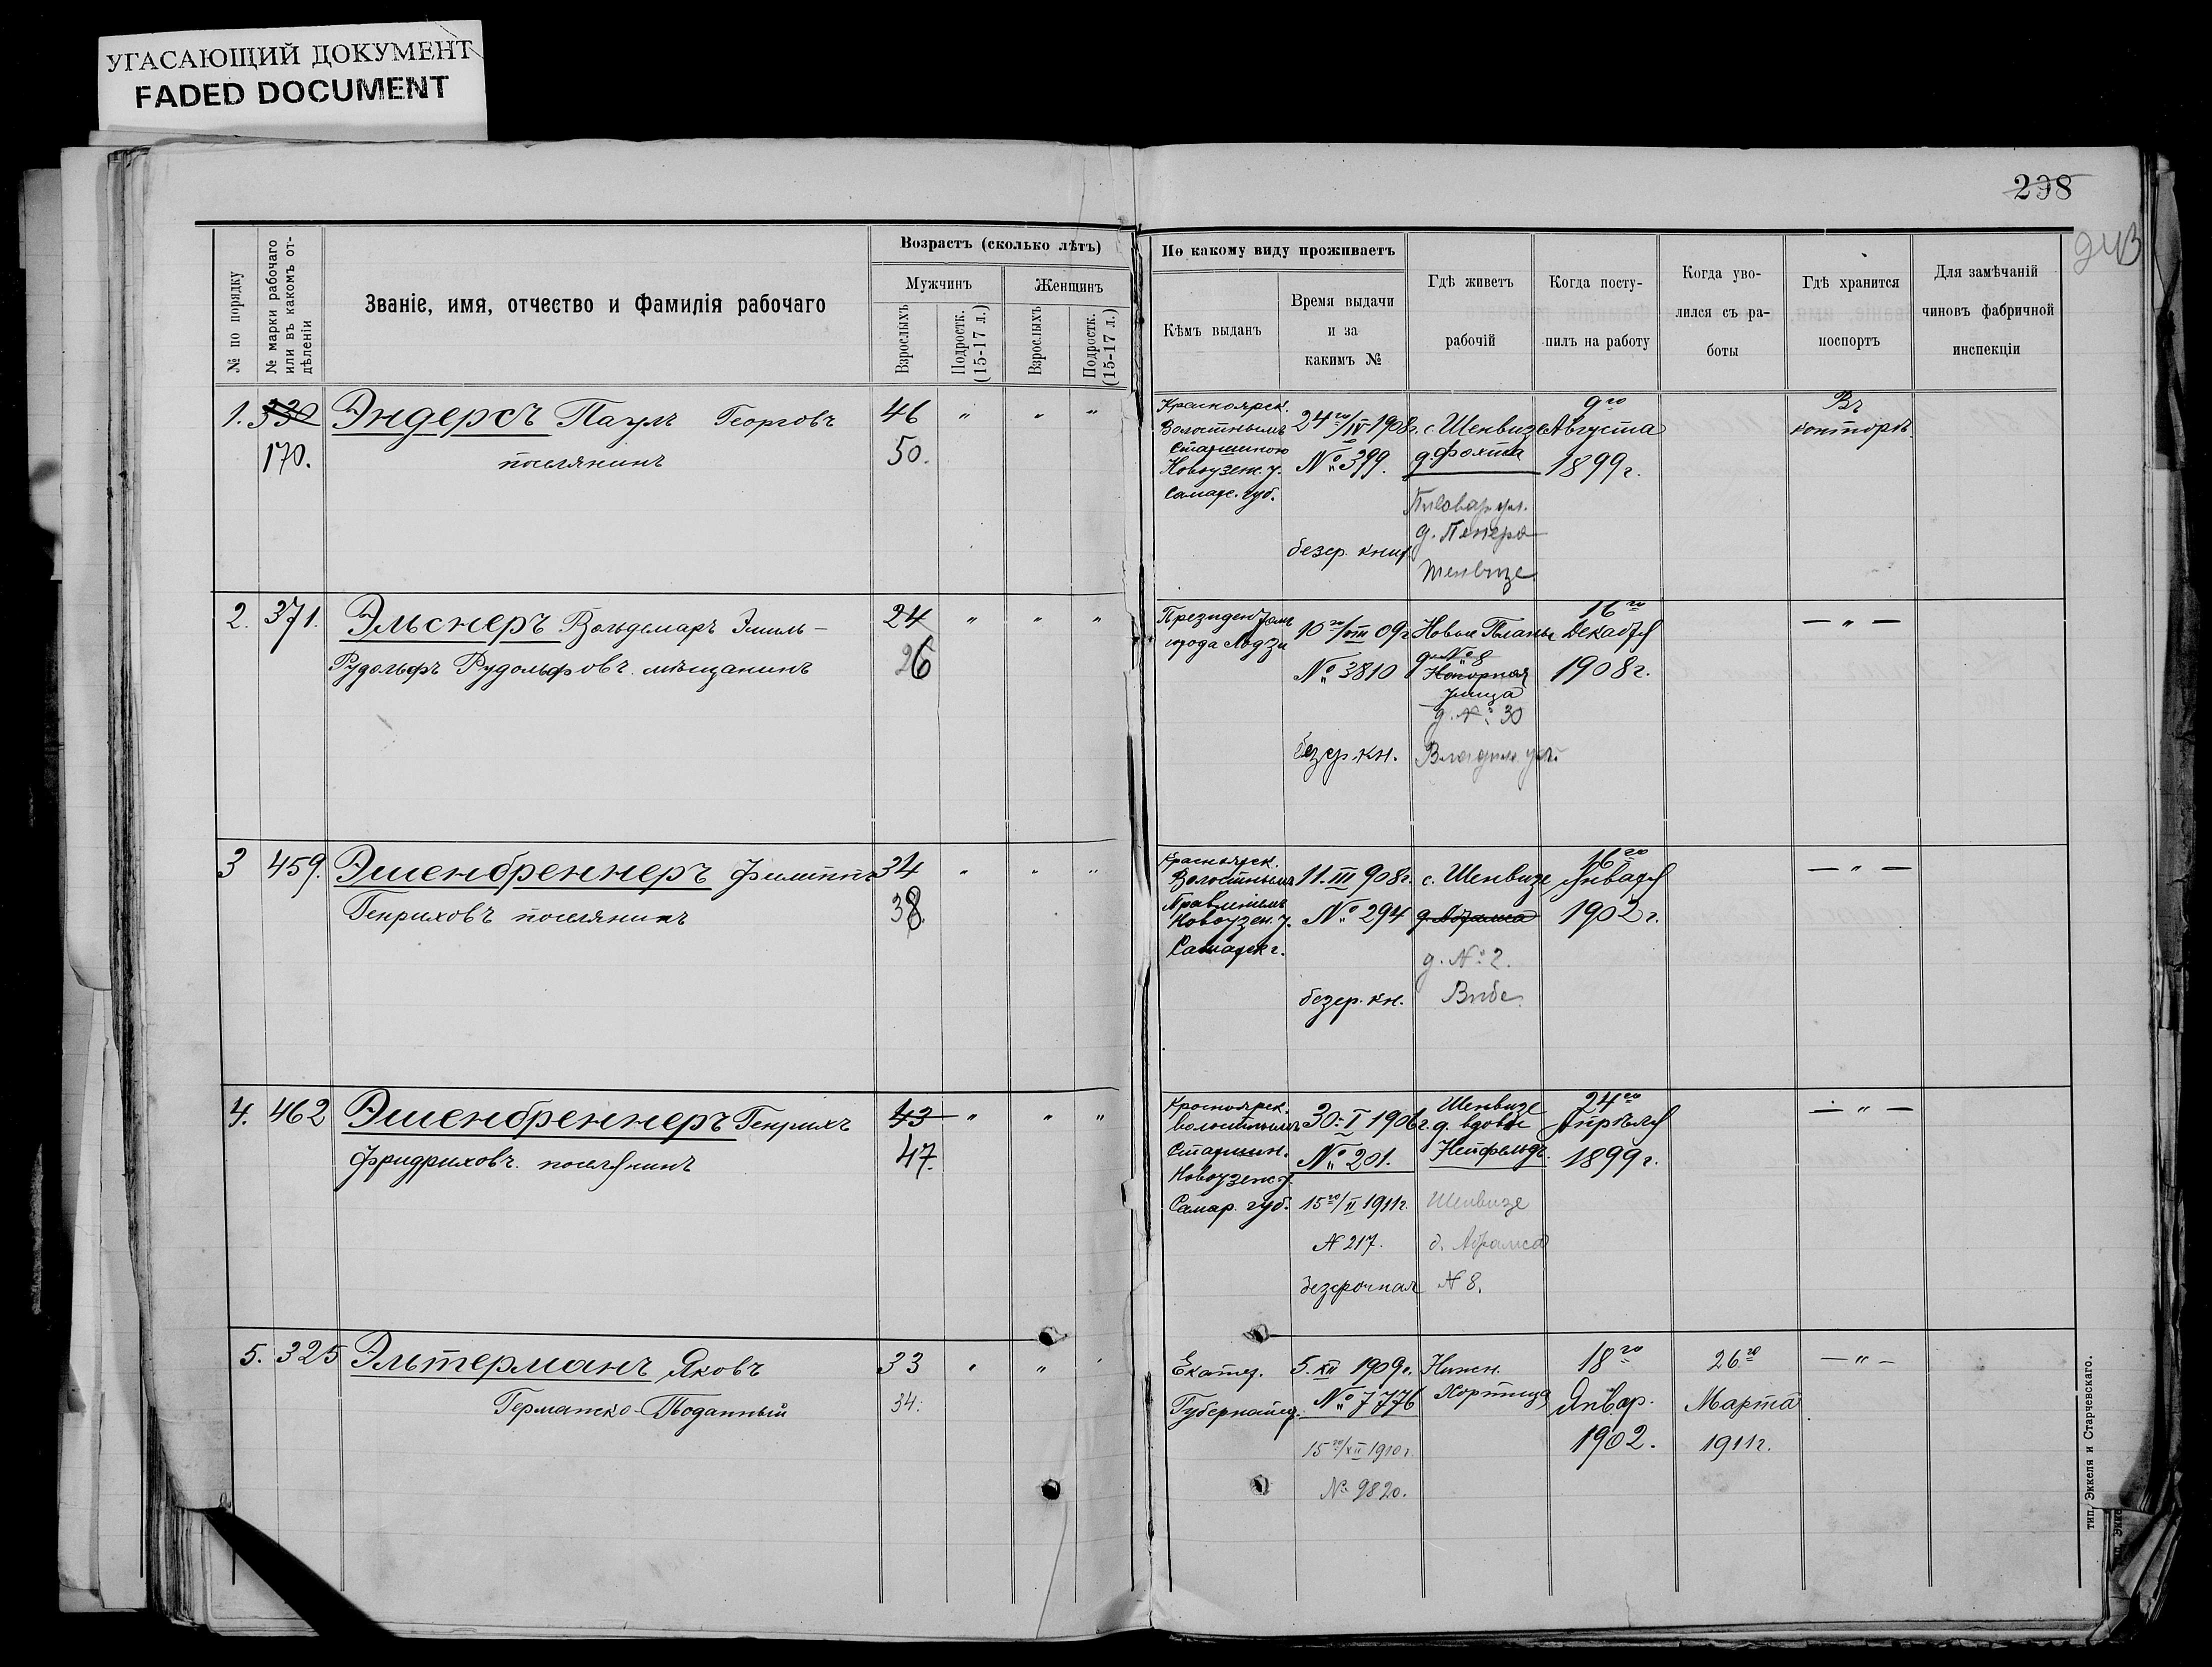 УГАСАЮЩИЙ ДОКУМЕНТ
FADED DOCUMENT
298
243
№ по порядку
№ марки рабочаго
или въ какомъ от-
дѣленіи
Званіе, имя, отчество и фамилія рабочаго
Возрастъ (сколько лѣтъ)
Мужчинъ
Женщинъ
Взрослыхъ
Подростк.
(15-17 л.)
Взрослыхъ
Подростк.
(15-17 л.)
По какому виду проживаетъ
Кѣмъ выданъ
Время выдачи
и за
какимъ №
Гдѣ живетъ
рабочій
Когда посту-
пилъ на работу
Когда уво-
лился съ ра-
боты
Гдѣ хранится
поспортъ
Для замѣчаній
чиновъ фабричной
инспекціи
1. 330 Эндерсъ Паулъ Георговъ 46 " " "
170. поселянинъ 50.
Красноярск.
Волостнымъ
Старшиною
Новоузен. у.
Самарс. губ.
24го/IV 1908г.
№ 399.
безср. книж.
с. Шенвизе
д. Фохта
д. Пенера
Шенвизе
9го
Августа
1899г.
Въ
конторѣ
2. 371. Эльснеръ Вольдемаръ Эмиль- 24 " " "
Рудольфъ Рудольфовъ. мѣщанинъ 26
Президентомъ
города Лодзи
10го/VIII 09г
№ 3810
безср. кн.
Новые Планы
д. № 8
улица
д. № 30
16го
Декабря
1908г.
— " —
3 459. Эшенбреннеръ Филиппъ 34 " " "
Генриховъ поселянинъ 38
Красноярск.
Волостнымъ
Правленіемъ
Новоузен. у.
Самарск г.
11.III 908г.
№ 294
безср. кн.
с. Шенвизе
д. Абрамса
д. № 2.
Вибе
16го
Января
1902 г.
— " —
4. 462 Эшенбреннеръ Генрихъ 43 " " "
Фридриховъ. поселянинъ 47.
Красноярск.
волостнымъ
Старшин.
Новоузенс у.
Самар. губ.
30.I 1906г.
№ 201.
15го/II 1911г.
N 217.
безсрочная
Шенвизе
д. вдовы
Нейфельдъ.
Шенвизе
д. Абрамса
N 8.
24го
Апрѣля
1899г.
— " —
5. 325 Эльтерманъ Яковъ 33 " " "
Германско-Подданный 34.
Екатер.
Губернатор.
5.XII 1909г.
№ 7776
15го/XII 1910г.
№ 9820.
Нижн.
Хортица
18го
Январ.
1902.
26го
Марта
1911г.
— " —
тип. Эккеля и Старчевскаго.